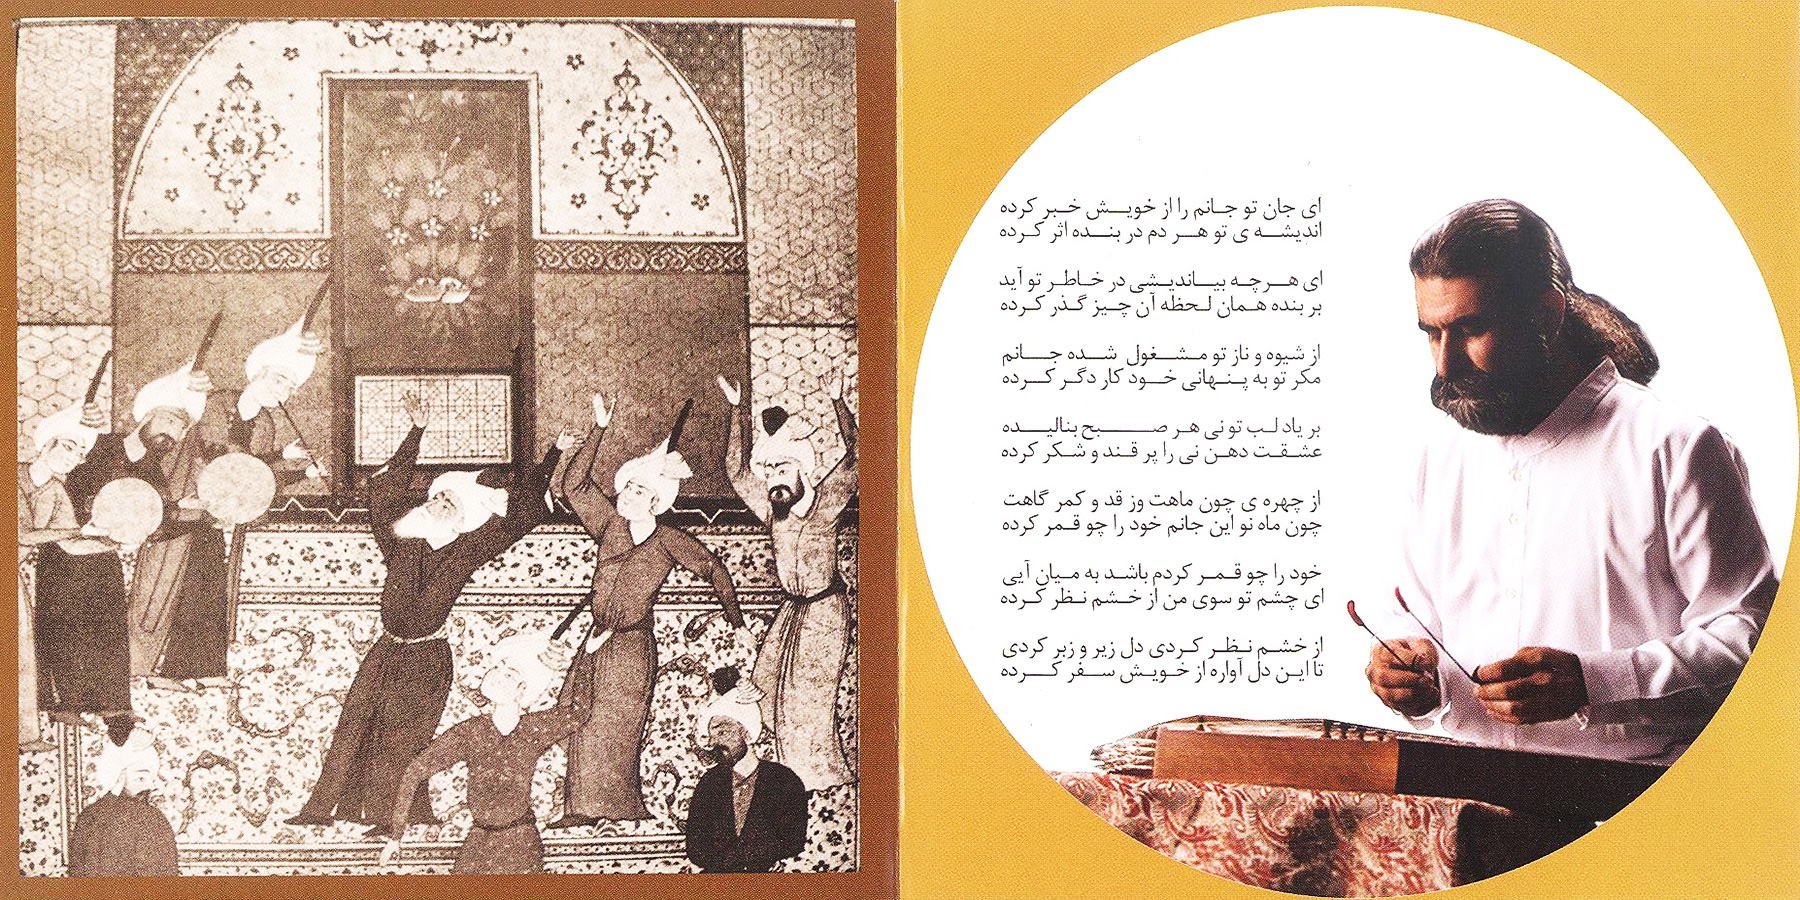 ای جان تو جانم را از خویش خبر کرده
اندیشه ی تو هر دم در بنده اثر کرده
ای هرچه بیاندیشی در خاطر تو آید
بر بنده همان لحظه آن چیز گذر کرده
از شیوه و ناز تو مشغول شده جانم
مکر تو به پنهانی خود کار دگر کرده
بر یاد لب تو نی هر صبح بنالیده
عشقت دهن نی را پر قند و شکر کرده
از چهره ی چون ماهت وز قد و کمر گاهت
چون ماه نو این جانم خود را چو قمر کرده
خود را چو قمر کردم باشد به میان آیی
ای چشم تو سوی من از خشم نظر کرده
از خشم نظر کردی دل زیر و زبر کردی
تا این دل آواره از خویش سفر کرده